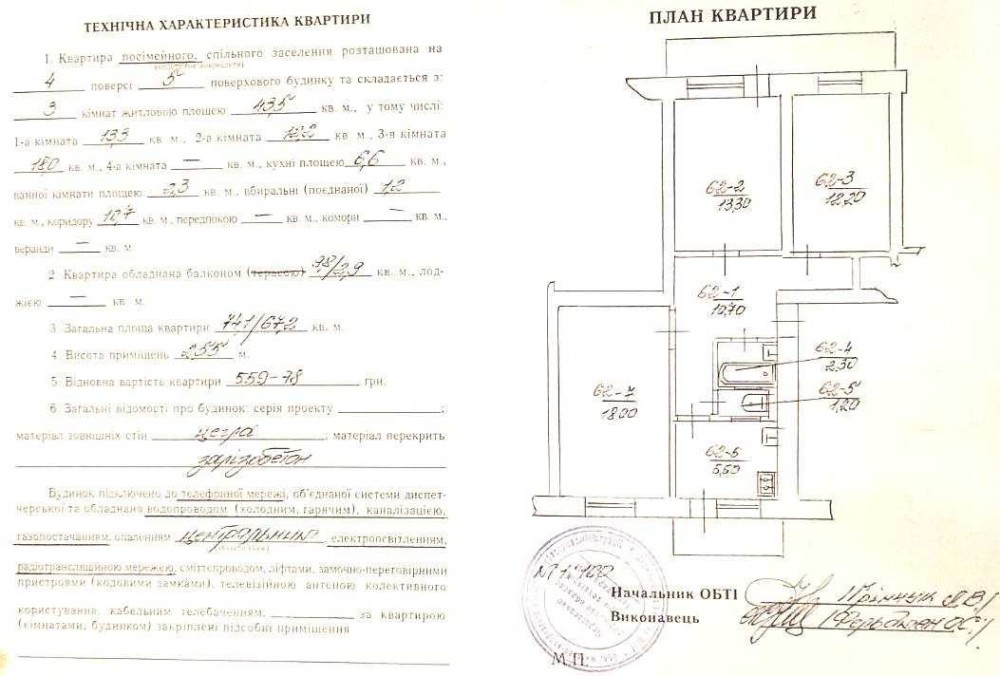 ТЕХНІЧНА ХАРАКТЕРИСТИКА КВАРТИРИ
1. Квартира посімейного, спільного заселення розташована на
4 поверсі 5 поверхового будинку та складається з:
3 кімнат житловою площею 43,5 кв. м., у тому числі:
1-а кімната 13,3 кв. м., 2-а кімната 12,2 кв. м., 3-я кімната
18,0 кв. м., 4-а кімната — кв. м., кухні площею 6,6 кв. м.,
ванної кімнати площею 2,3 кв. м., вбиральні (поєднаної) 1,2
кв. м., коридору 10,7 кв. м., передпокою — кв. м., комори — кв. м.,
веранди — кв. м.
2. Квартира обладнана балконом (терасою) 9,8/2,9 кв. м., лод-
жією — кв. м.
3. Загальна площа квартири 74,1/67,2 кв. м.
4. Висота приміщень 2,55 м.
5. Відновна вартість квартири 559-78 грн.
6. Загальні відомості про будинок: серія проекту ;
матеріал зовнішніх стін цегла ; матеріал перекрить
залізобетон
Будинок підключено до телефонної мережі, об'єднаної системи диспет-
черської та обладнано водопроводом (холодним, гарячим), каналізацією,
газопостачанням, опаленням центральним електроосвітленням,
радіотрансляційною мережею, сміттєпроводом, ліфтами, замочно-переговорними
пристроями (кодовими замками), телевізійною антеною колективного
користування, кабельним телебаченням, за квартирою
(кімнатами, будинком) закріплені підсобні приміщення
ПЛАН КВАРТИРИ
62-2
13,30
62-3
12,20
62-1
10,70
62-4
2,30
62-5
1,20
62-7
18,00
62-6
6,60
Начальник ОБТІ
Виконавець
М.П.